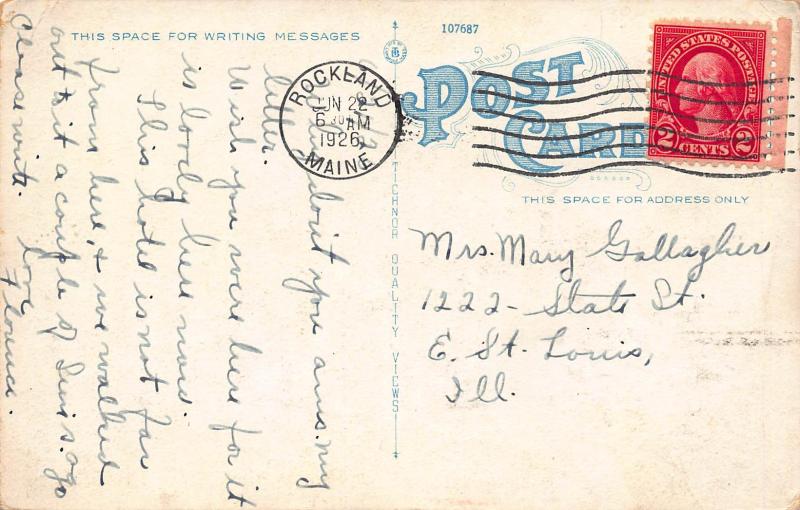 THIS SPACE FOR WRITING MESSAGES
107687
POST CARD
THIS SPACE FOR ADDRESS ONLY
TICHNOR QUALITY VIEWS
ROCKLAND
JUN 22
6 AM
1926
MAINE
UNITED STATES POSTAGE
2 CENTS 2
you ans. my
letter.
Wish you were here for it
is lovely here now.
This hotel is not far
from here, & we walked
out to it a couple of Suns. ago
Please write. Love
Florence.
Mrs. Mary Gallagher
1222- State St.
E. St. Louis,
Ill.